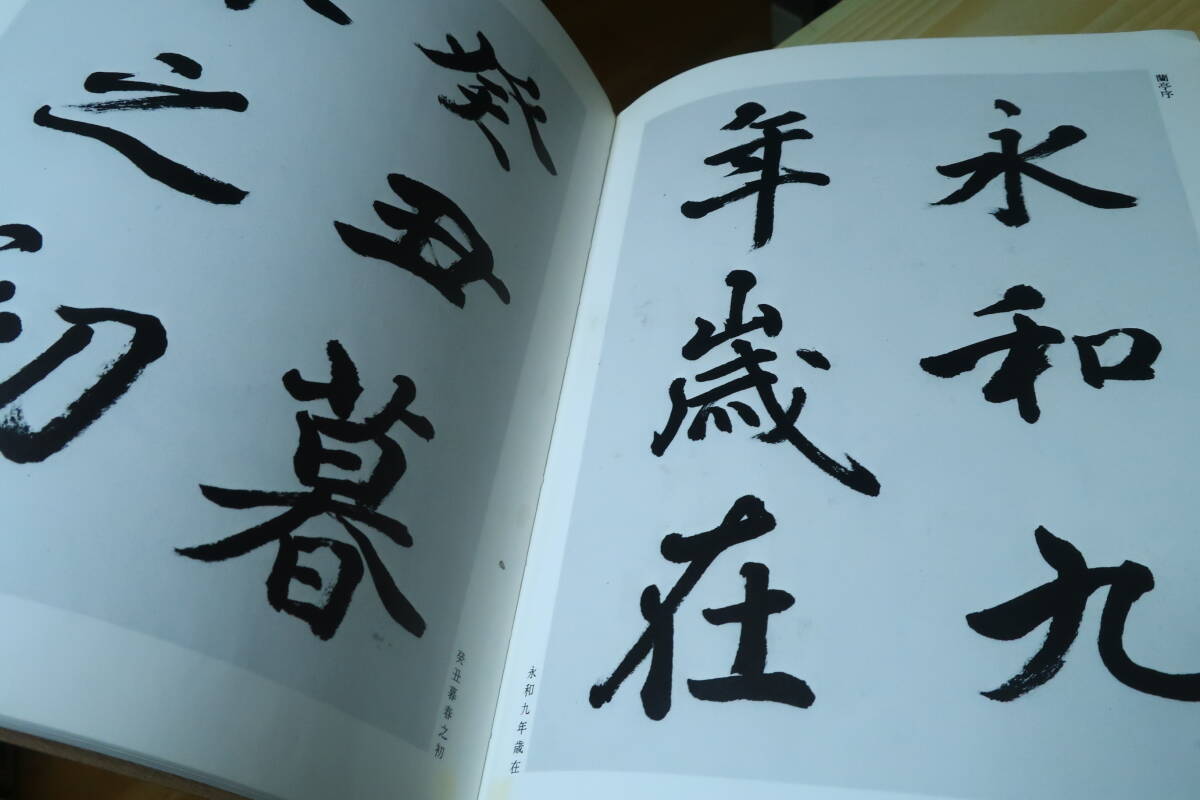 蘭亭序
永和九
年歳在
永和九年歳在
癸丑暮
之初
癸丑暮春之初